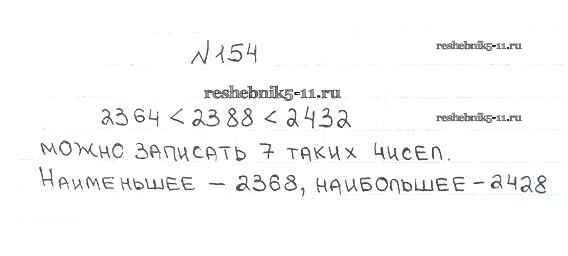 №154
reshebnik5-11.ru
reshebnik5-11.ru
2364 < 2388 < 2432
reshebnik5-11.ru
МОЖНО ЗАПИСАТЬ 7 ТАКИХ ЧИСЕЛ.
НАИМЕНЬШЕЕ – 2368, НАИБОЛЬШЕЕ – 2428